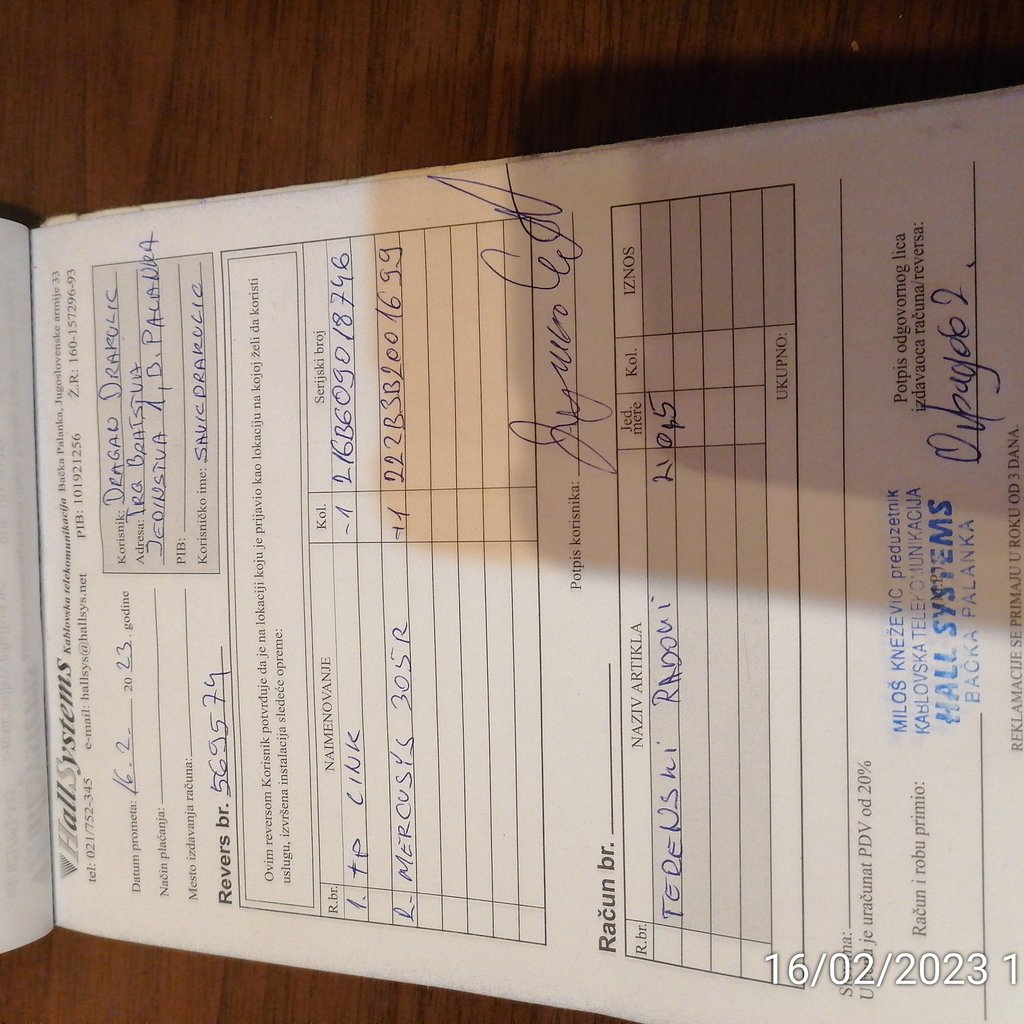 HallSystems Kablovska telekomunikacija Bačka Palanka, Jugoslovenske armije 33
tel: 021/752-345 e-mail: hallsys@hallsys.net PIB: 101921256 Ž.R: 160-157296-93
Datum prometa: 16. 2. 2023. godine
Način plaćanja:
Mesto izdavanja računa:
Korisnik: DRAGAN DRAKULIC
Adresa: TRG BRATSTVA
JEDINSTVA 1, B. PALANKA
PIB:
Korisničko ime: SAVCDRAKULIC
Revers br. 5695574
Ovim reversom Korisnik potvrđuje da je na lokaciji koju je prijavio kao lokaciju na kojoj želi da koristi
uslugu, izvršena instalacija sledeće opreme:
R.br. NAIMENOVANJE Kol. Serijski broj
1. TP LINK -1 216B609018746
2. MERCUSYS 305R +1 222B3B2001699
Potpis korisnika:
Račun br.
R.br. NAZIV ARTIKLA Jed. mere Kol. IZNOS
TERENSKI RADOVI
UKUPNO:
U cenu je uračunat PDV od 20%
Račun i robu primio:
MILOŠ KNEŽEVIĆ preduzetnik
KABLOVSKA TELEKOMUNIKACIJA
HALL SYSTEMS
BAČKA PALANKA
Potpis odgovornog lica
izdavaoca računa/reversa:
REKLAMACIJE SE PRIMAJU U ROKU OD 3 DANA.
16/02/2023 1